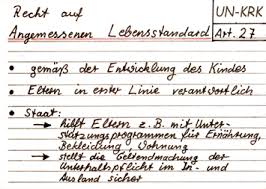 Recht auf
UN-KRK
Angemessenen Lebensstandard
Art. 27
• gemäß der Entwicklung des Kindes
• Eltern in erster Linie verantwortlich
• Staat:
→ hilft Eltern z.B. mit Unter-
stützungsprogrammen für Ernährung,
Bekleidung, Wohnung
→ stellt die Geltendmachung der
Unterhaltspflicht im In- und
Ausland sicher